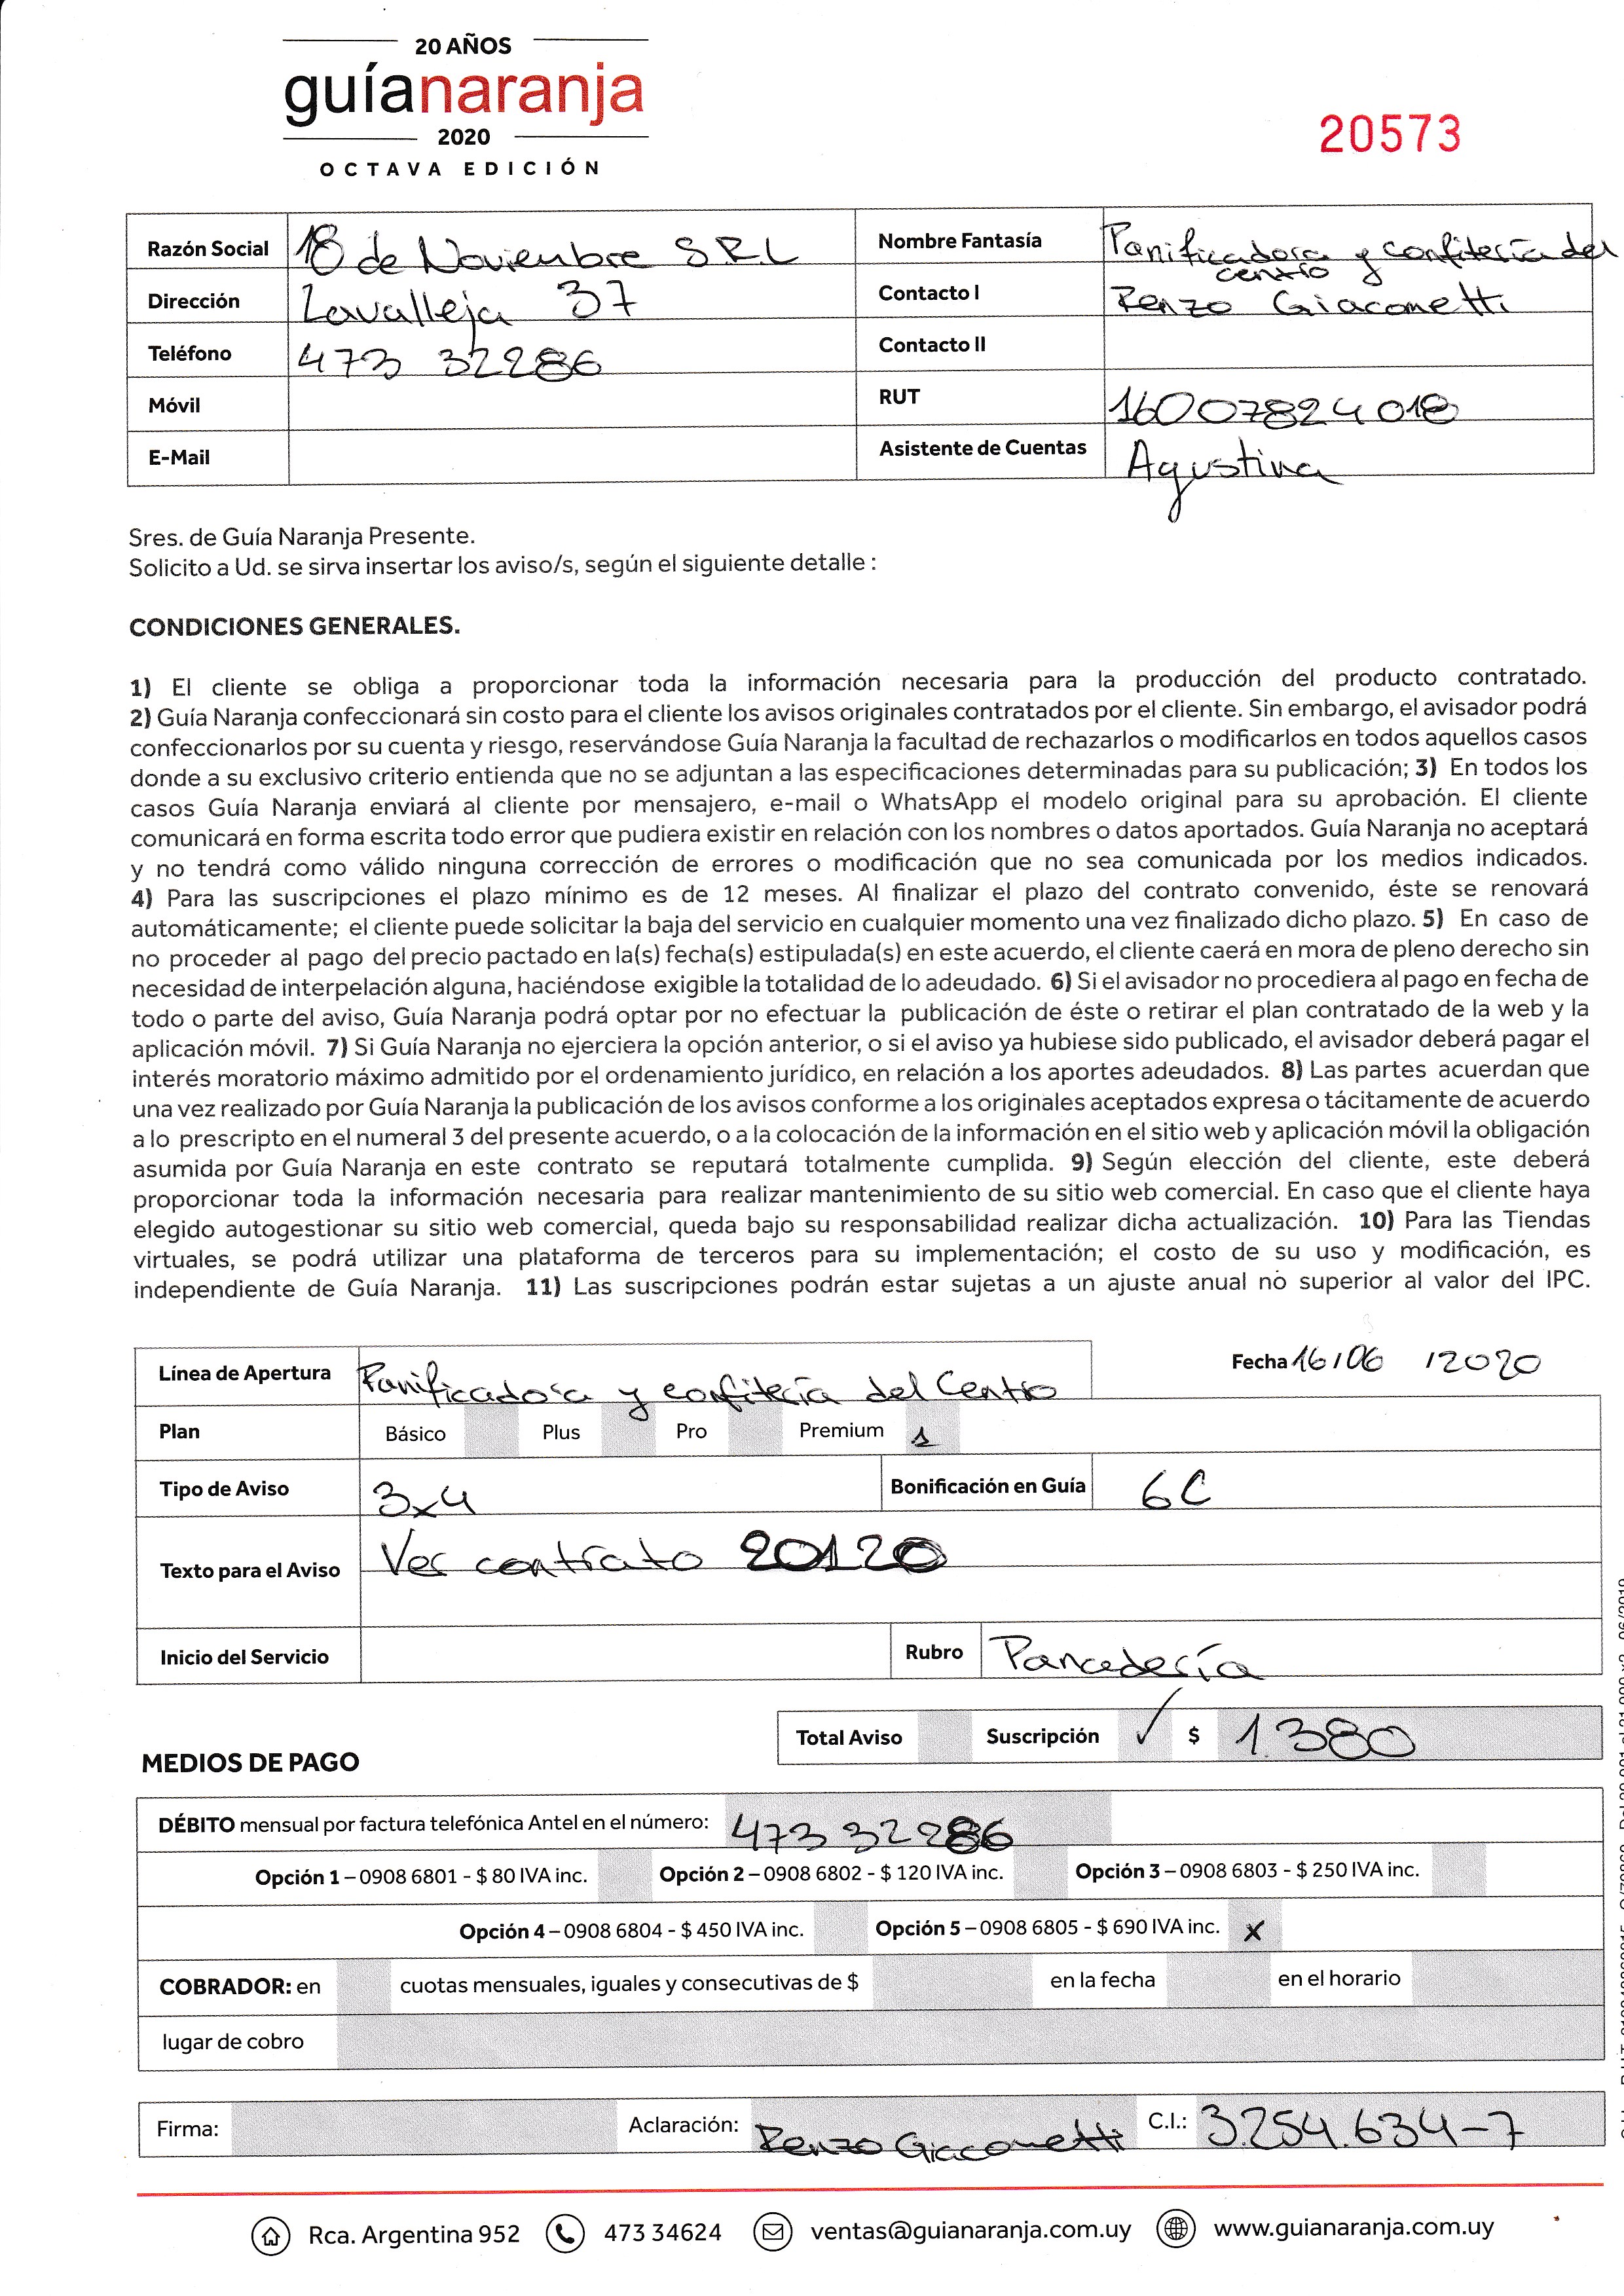 20 AÑOS
guíanaranja
2020
OCTAVA EDICIÓN
20573
Razón Social 18 de Noviembre S.R.L Nombre Fantasía Panificadora y confitería del centro
Dirección Lavalleja 37 Contacto I Renzo Giacometti
Teléfono 473 32286 Contacto II
Móvil RUT 16007824018
E-Mail Asistente de Cuentas Agustina
Sres. de Guía Naranja Presente.
Solicito a Ud. se sirva insertar los aviso/s, según el siguiente detalle :
CONDICIONES GENERALES.
1) El cliente se obliga a proporcionar toda la información necesaria para la producción del producto contratado.
2) Guía Naranja confeccionará sin costo para el cliente los avisos originales contratados por el cliente. Sin embargo, el avisador podrá
confeccionarlos por su cuenta y riesgo, reservándose Guía Naranja la facultad de rechazarlos o modificarlos en todos aquellos casos
donde a su exclusivo criterio entienda que no se adjuntan a las especificaciones determinadas para su publicación; 3) En todos los
casos Guía Naranja enviará al cliente por mensajero, e-mail o WhatsApp el modelo original para su aprobación. El cliente
comunicará en forma escrita todo error que pudiera existir en relación con los nombres o datos aportados. Guía Naranja no aceptará
y no tendrá como válido ninguna corrección de errores o modificación que no sea comunicada por los medios indicados.
4) Para las suscripciones el plazo mínimo es de 12 meses. Al finalizar el plazo del contrato convenido, éste se renovará
automáticamente; el cliente puede solicitar la baja del servicio en cualquier momento una vez finalizado dicho plazo. 5) En caso de
no proceder al pago del precio pactado en la(s) fecha(s) estipulada(s) en este acuerdo, el cliente caerá en mora de pleno derecho sin
necesidad de interpelación alguna, haciéndose exigible la totalidad de lo adeudado. 6) Si el avisador no procediera al pago en fecha de
todo o parte del aviso, Guía Naranja podrá optar por no efectuar la publicación de éste o retirar el plan contratado de la web y la
aplicación móvil. 7) Si Guía Naranja no ejerciera la opción anterior, o si el aviso ya hubiese sido publicado, el avisador deberá pagar el
interés moratorio máximo admitido por el ordenamiento jurídico, en relación a los aportes adeudados. 8) Las partes acuerdan que
una vez realizado por Guía Naranja la publicación de los avisos conforme a los originales aceptados expresa o tácitamente de acuerdo
a lo prescripto en el numeral 3 del presente acuerdo, o a la colocación de la información en el sitio web y aplicación móvil la obligación
asumida por Guía Naranja en este contrato se reputará totalmente cumplida. 9) Según elección del cliente, este deberá
proporcionar toda la información necesaria para realizar mantenimiento de su sitio web comercial. En caso que el cliente haya
elegido autogestionar su sitio web comercial, queda bajo su responsabilidad realizar dicha actualización. 10) Para las Tiendas
virtuales, se podrá utilizar una plataforma de terceros para su implementación; el costo de su uso y modificación, es
independiente de Guía Naranja. 11) Las suscripciones podrán estar sujetas a un ajuste anual no superior al valor del IPC.
Fecha 16/06/2020
Línea de Apertura Panificadora y confitería del Centro
Plan Básico Plus Pro Premium 1
Tipo de Aviso 3x4 Bonificación en Guía 6C
Texto para el Aviso Ver contrato 20120
Inicio del Servicio Rubro Panadería
Total Aviso Suscripción ✓ $ 1.380
MEDIOS DE PAGO
DÉBITO mensual por factura telefónica Antel en el número: 473 32286
Opción 1 – 0908 6801 - $ 80 IVA inc. Opción 2 – 0908 6802 - $ 120 IVA inc. Opción 3 – 0908 6803 - $ 250 IVA inc.
Opción 4 – 0908 6804 - $ 450 IVA inc. Opción 5 – 0908 6805 - $ 690 IVA inc. x
COBRADOR: en cuotas mensuales, iguales y consecutivas de $ en la fecha en el horario
lugar de cobro
Firma: Aclaración: Renzo Giacometti C.I.: 3.254.634-7
Rca. Argentina 952 473 34624 ventas@guianaranja.com.uy www.guianaranja.com.uy